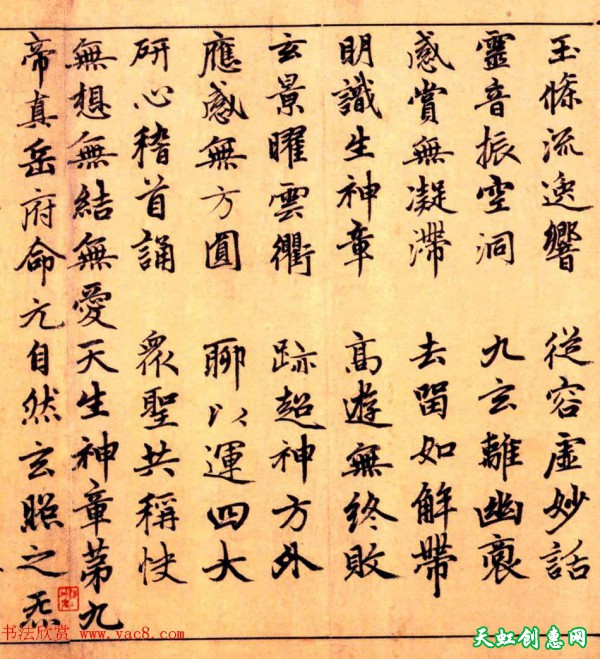 玉條流逸響　從容虛妙話
靈音振空洞　九玄離幽裔
感賞無凝滯　去留如解帶
明識生神章　高遊無終敗
玄景曜雲衢　跡超神方外
應感無方圓　聊以運四大
研心稽首誦　衆聖共稱快
無想無結無愛天生神章第九
帝真岳府命元自然玄照之炁
书法欣赏 www.yac8.com
天虹创惠网